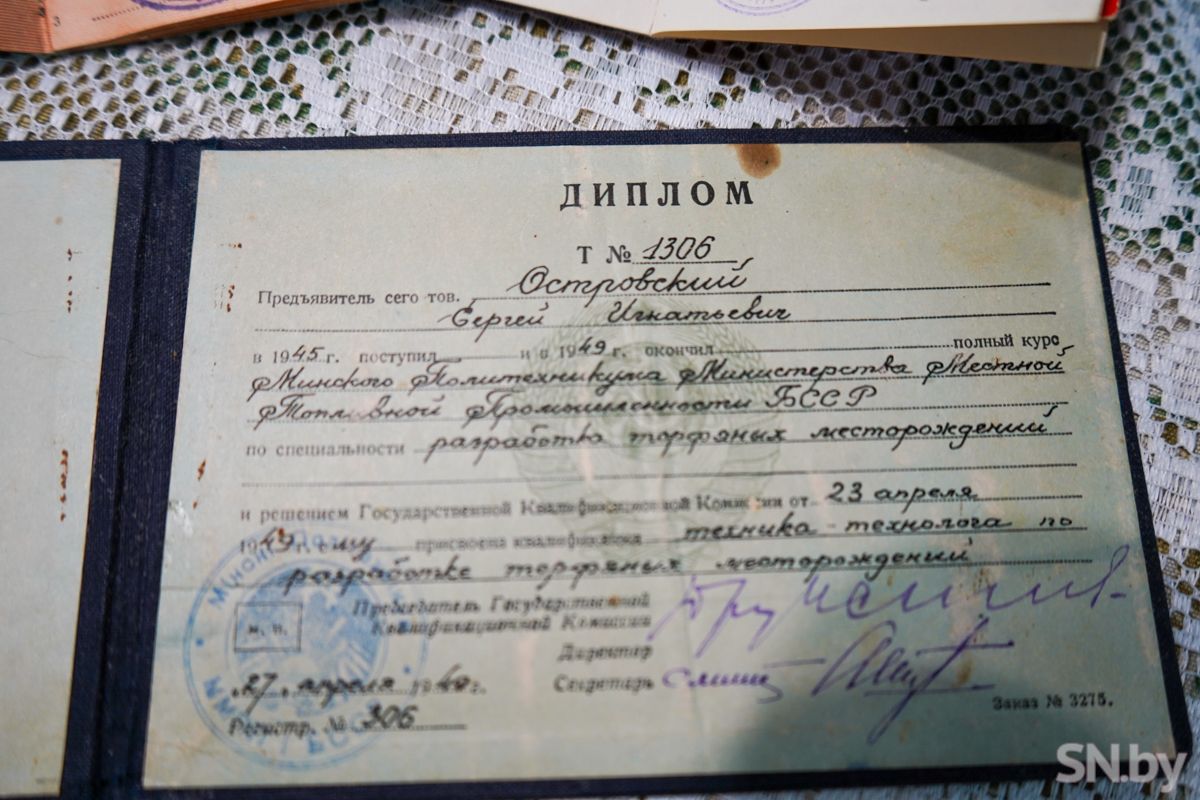 3
ДИПЛОМ
Т № 1306
Предъявитель сего тов. Островский
Сергей Игнатьевич
в 1945 г. поступил и в 1949 г. окончил полный курс
Минского Политехникума Министерства Местной
Топливной Промышленности БССР
по специальности разработка торфяных месторождений
и решением Государственной Квалификационной Комиссии от 23 апреля
1949 г. ему присвоена квалификация техника-технолога по
разработке торфяных месторождений
Председатель Государственной
Квалификационной Комиссии
Директор
Секретарь
м. п.
27 апреля 1949 г.
Регистр. № 306
Заказ № 3275.
SN.by